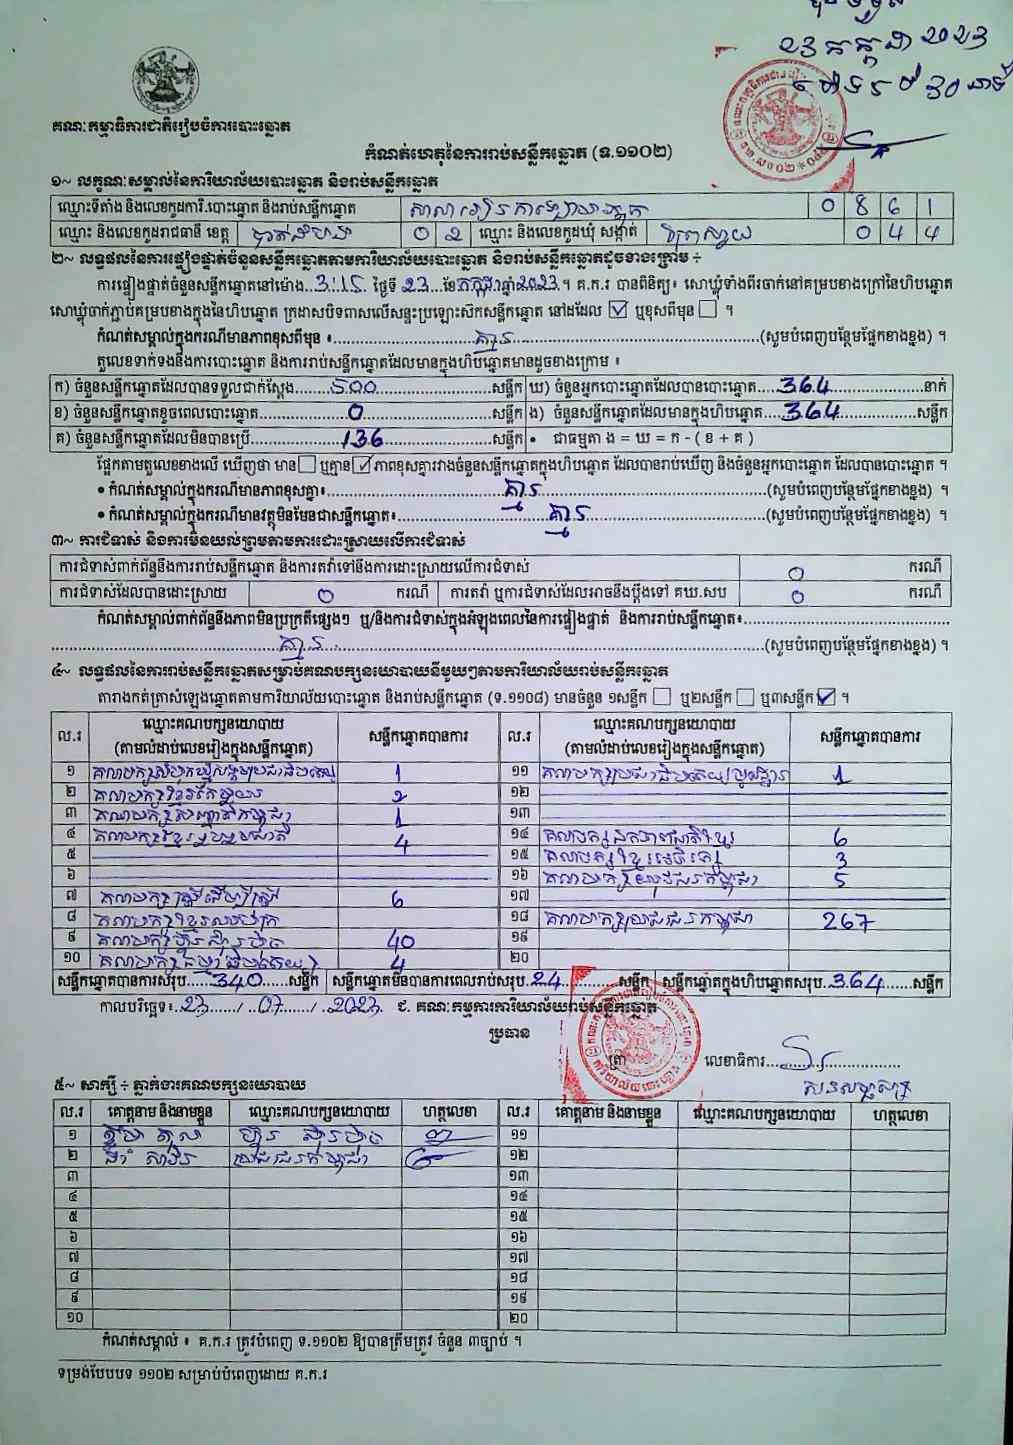 ២៣ កក្កដា ២០២៣
គណៈកម្មាធិការជាតិរៀបចំការបោះឆ្នោត
កំណត់ហេតុនៃការរាប់សន្លឹកឆ្នោត (ទ.១១០២)
១~ លក្ខណៈសម្គាល់នៃការិយាល័យបោះឆ្នោត និងរាប់សន្លឹកឆ្នោត
ឈ្មោះទីតាំង និងលេខកូដការិ.បោះឆ្នោត និងរាប់សន្លឹកឆ្នោត 0 8 6 1
ឈ្មោះ និងលេខកូដរាជធានី ខេត្ត បាត់ដំបង 0 2 ឈ្មោះ និងលេខកូដឃុំ សង្កាត់ ព្រៃស្វាយ 0 4 4
២~ លទ្ធផលនៃការផ្ទៀងផ្ទាត់ចំនួនសន្លឹកឆ្នោតតាមការិយាល័យបោះឆ្នោត និងរាប់សន្លឹកឆ្នោតដូចខាងក្រោម ÷
ការផ្ទៀងផ្ទាត់ចំនួនសន្លឹកឆ្នោតនៅម៉ោង..3:15.. ថ្ងៃទី 23 ខែកក្កដាឆ្នាំ2023។ គ.ក.រ បានពិនិត្យ៖ សោឃ្លុំទាំងពីរចាក់នៅគម្របខាងក្រៅនៃហិបឆ្នោត
សោឃ្លុំចាក់ភ្ជាប់គម្របខាងក្នុងនៃហិបឆ្នោត ក្រដាសបិទពាសលើសន្ទះប្រឡោះស៊កសន្លឹកឆ្នោត នៅដដែល ☑ ឬខុសពីមុន ☐ ។
កំណត់សម្គាល់ក្នុងករណីមានភាពខុសពីមុន ៖ គ្មាន (សូមបំពេញបន្ថែមផ្នែកខាងខ្នង) ។
តួលេខទាក់ទងនឹងការបោះឆ្នោត និងការរាប់សន្លឹកឆ្នោតដែលមានក្នុងហិបឆ្នោតមានដូចខាងក្រោម ៖
ក) ចំនួនសន្លឹកឆ្នោតដែលបានទទួលជាក់ស្តែង 500 សន្លឹក ឃ) ចំនួនអ្នកបោះឆ្នោតដែលបានបោះឆ្នោត 364 នាក់
ខ) ចំនួនសន្លឹកឆ្នោតខូចពេលបោះឆ្នោត 0 សន្លឹក ង) ចំនួនសន្លឹកឆ្នោតដែលមានក្នុងហិបឆ្នោត 364 សន្លឹក
គ) ចំនួនសន្លឹកឆ្នោតដែលមិនបានប្រើ 136 សន្លឹក • ជាធម្មតា ង = ឃ = ក - ( ខ + គ )
ផ្អែកតាមតួលេខខាងលើ ឃើញថា មាន ☐ ឬគ្មាន ☑ ភាពខុសគ្នារវាងចំនួនសន្លឹកឆ្នោតក្នុងហិបឆ្នោត ដែលបានរាប់ឃើញ និងចំនួនអ្នកបោះឆ្នោត ដែលបានបោះឆ្នោត ។
• កំណត់សម្គាល់ក្នុងករណីមានភាពខុសគ្នា៖ គ្មាន (សូមបំពេញបន្ថែមផ្នែកខាងខ្នង) ។
• កំណត់សម្គាល់ក្នុងករណីមានវត្ថុមិនមែនជាសន្លឹកឆ្នោត៖ គ្មាន (សូមបំពេញបន្ថែមផ្នែកខាងខ្នង) ។
៣~ ការជំទាស់ និងការមិនយល់ព្រមតាមការដោះស្រាយលើការជំទាស់
ការជំទាស់ពាក់ព័ន្ធនឹងការរាប់សន្លឹកឆ្នោត និងការតវ៉ាទៅនឹងការដោះស្រាយលើការជំទាស់ 0 ករណី
ការជំទាស់ដែលបានដោះស្រាយ 0 ករណី ការតវ៉ា ឬការជំទាស់ដែលអាចនឹងប្តឹងទៅ គឃ.សប 0 ករណី
កំណត់សម្គាល់ពាក់ព័ន្ធនឹងភាពមិនប្រក្រតីផ្សេងៗ ឬ/និងការជំទាស់ក្នុងអំឡុងពេលនៃការផ្ទៀងផ្ទាត់ និងការរាប់សន្លឹកឆ្នោត៖
គ្មាន (សូមបំពេញបន្ថែមផ្នែកខាងខ្នង) ។
៤~ លទ្ធផលនៃការរាប់សន្លឹកឆ្នោតសម្រាប់គណបក្សនយោបាយនីមួយៗតាមការិយាល័យរាប់សន្លឹកឆ្នោត
តារាងកត់ត្រាសំឡេងឆ្នោតតាមការិយាល័យបោះឆ្នោត និងរាប់សន្លឹកឆ្នោត (ទ.១១០៨) មានចំនួន ១សន្លឹក ☐ ឬ២សន្លឹក ☐ ឬ៣សន្លឹក ☑ ។
ល.រ ឈ្មោះគណបក្សនយោបាយ (តាមលំដាប់លេខរៀងក្នុងសន្លឹកឆ្នោត) សន្លឹកឆ្នោតបានការ ល.រ ឈ្មោះគណបក្សនយោបាយ (តាមលំដាប់លេខរៀងក្នុងសន្លឹកឆ្នោត) សន្លឹកឆ្នោតបានការ
១ 1 ១១ 1
២ គណបក្សខ្មែរតែមួយ 2 ១២
៣ 1 ១៣
៤ គណបក្សខ្មែររួបរួមជាតិ 4 ១៤ គណបក្សឯកភាពជាតិខ្មែរ 6
៥ ១៥ 3
៦ ១៦ គណបក្សយុវជនកម្ពុជា 5
៧ គណបក្សស្ត្រីដើម្បីស្ត្រី 6 ១៧
៨ ១៨ គណបក្សប្រជាជនកម្ពុជា 267
៩ គណបក្សហ៊្វុនស៊ិនប៉ិច 40 ១៩
១០ 4 ២០
សន្លឹកឆ្នោតបានការសរុប 340 សន្លឹក សន្លឹកឆ្នោតមិនបានការពេលរាប់សរុប 24 សន្លឹក សន្លឹកឆ្នោតក្នុងហិបឆ្នោតសរុប 364 សន្លឹក
កាលបរិច្ឆេទ៖ 23 / 07 / 2023 ជ. គណៈកម្មការការិយាល័យរាប់សន្លឹកឆ្នោត
ប្រធាន
ត្រា លេខាធិការ
៥~ សាក្សី ÷ ភ្នាក់ងារគណបក្សនយោបាយ
ល.រ គោត្តនាម និងនាមខ្លួន ឈ្មោះគណបក្សនយោបាយ ហត្ថលេខា ល.រ គោត្តនាម និងនាមខ្លួន ឈ្មោះគណបក្សនយោបាយ ហត្ថលេខា
១ ហ៊្វុន ស៊ិនប៉ិច ១១
២ ប្រជាជនកម្ពុជា ១២
៣ ១៣
៤ ១៤
៥ ១៥
៦ ១៦
៧ ១៧
៨ ១៨
៩ ១៩
១០ ២០
កំណត់សម្គាល់ ៖ គ.ក.រ ត្រូវបំពេញ ទ.១១០២ ឱ្យបានត្រឹមត្រូវ ចំនួន ៣ច្បាប់ ។
ទម្រង់បែបបទ ១១០២ សម្រាប់បំពេញដោយ គ.ក.រ